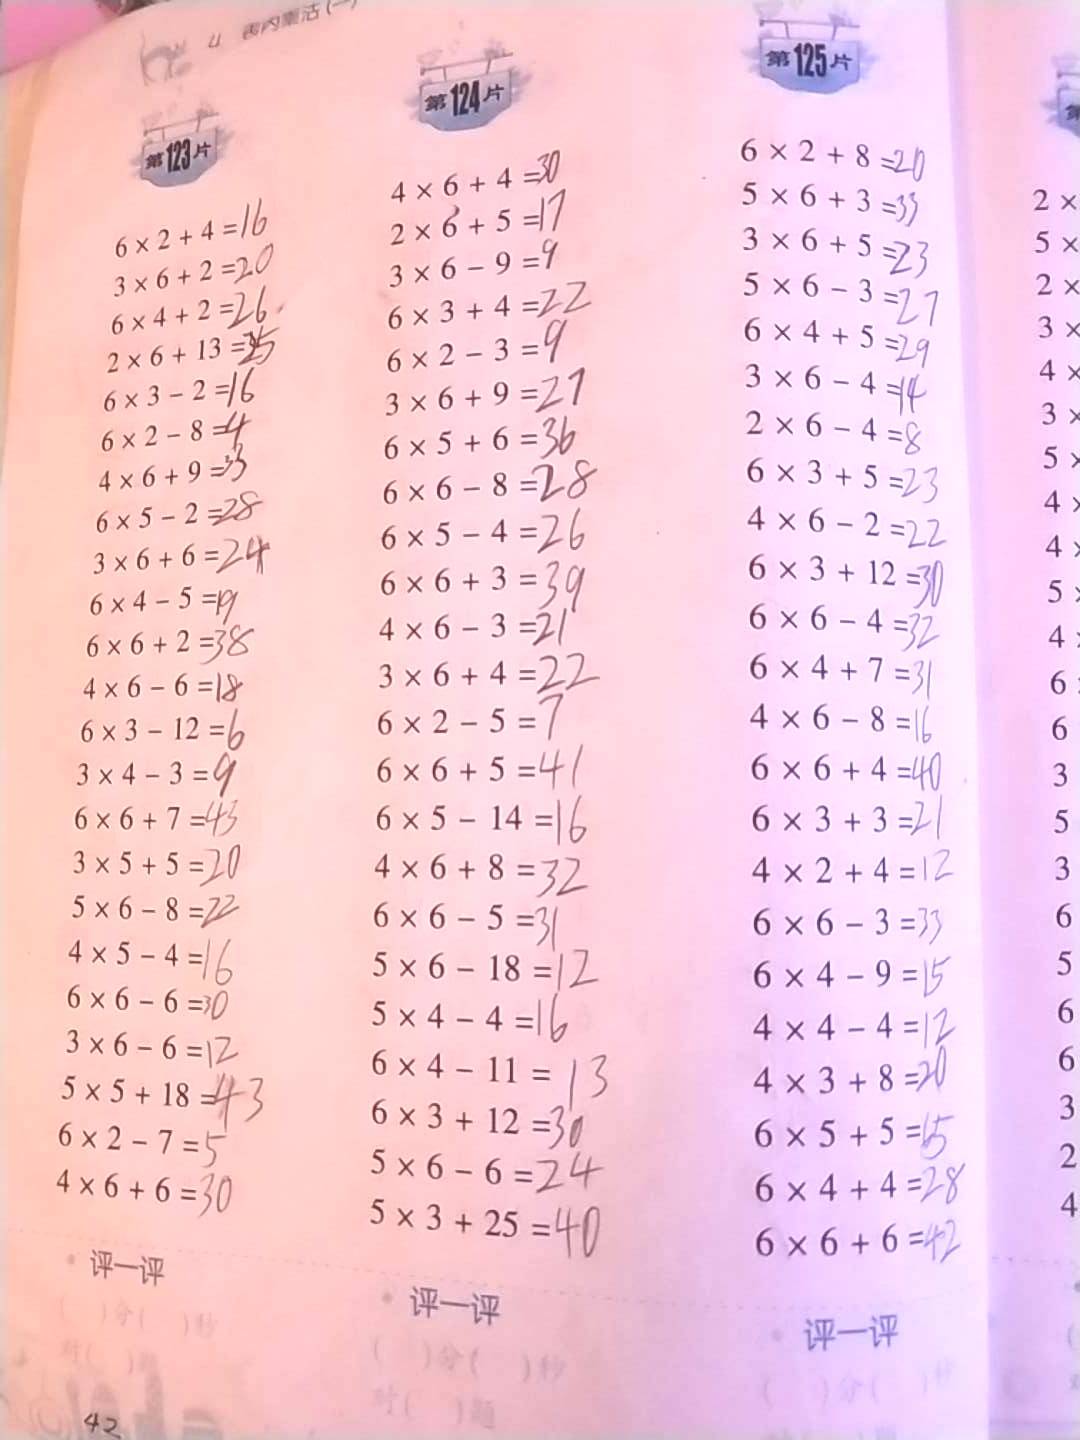 4 表内乘法(一)
第123片
6 × 2 + 4 =16
3 × 6 + 2 =20
6 × 4 + 2 =26
2 × 6 + 13 =25
6 × 3 − 2 =16
6 × 2 − 8 =4
4 × 6 + 9 =33
6 × 5 − 2 =28
3 × 6 + 6 =24
6 × 4 − 5 =19
6 × 6 + 2 =38
4 × 6 − 6 =18
6 × 3 − 12 =6
3 × 4 − 3 =9
6 × 6 + 7 =43
3 × 5 + 5 =20
5 × 6 − 8 =22
4 × 5 − 4 =16
6 × 6 − 6 =30
3 × 6 − 6 =12
5 × 5 + 18 =43
6 × 2 − 7 =5
4 × 6 + 6 =30
评一评
( )分( )秒
对( )题
42
第124片
4 × 6 + 4 =30
2 × 6 + 5 =17
3 × 6 − 9 =9
6 × 3 + 4 =22
6 × 2 − 3 =9
3 × 6 + 9 =27
6 × 5 + 6 =36
6 × 6 − 8 =28
6 × 5 − 4 =26
6 × 6 + 3 =39
4 × 6 − 3 =21
3 × 6 + 4 =22
6 × 2 − 5 =7
6 × 6 + 5 =41
6 × 5 − 14 =16
4 × 6 + 8 =32
6 × 6 − 5 =31
5 × 6 − 18 =12
5 × 4 − 4 =16
6 × 4 − 11 =13
6 × 3 + 12 =30
5 × 6 − 6 =24
5 × 3 + 25 =40
评一评
( )分( )秒
对( )题
第125片
6 × 2 + 8 =20
5 × 6 + 3 =33
3 × 6 + 5 =23
5 × 6 − 3 =27
6 × 4 + 5 =29
3 × 6 − 4 =14
2 × 6 − 4 =8
6 × 3 + 5 =23
4 × 6 − 2 =22
6 × 3 + 12 =30
6 × 6 − 4 =32
6 × 4 + 7 =31
4 × 6 − 8 =16
6 × 6 + 4 =40
6 × 3 + 3 =21
4 × 2 + 4 =12
6 × 6 − 3 =33
6 × 4 − 9 =15
4 × 4 − 4 =12
4 × 3 + 8 =20
6 × 5 + 5 =
6 × 4 + 4 =28
6 × 6 + 6 =42
评一评
( )分( )秒
2 ×
5 ×
2 ×
3 ×
4 ×
3 ×
5 ×
4 ×
4 ×
5 ×
4
6
6
3
5
3
6
5
6
6
3
2
4